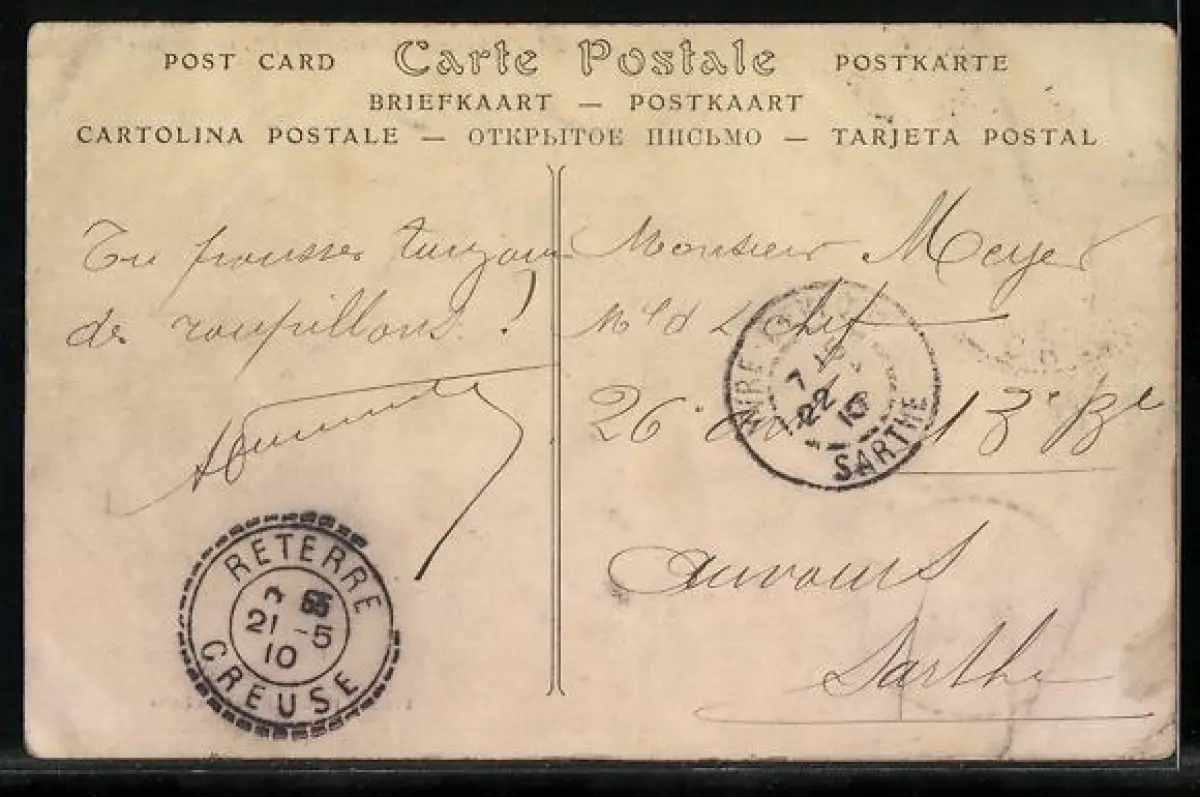 POST CARD Carte Postale POSTKARTE
BRIEFKAART — POSTKAART
CARTOLINA POSTALE — ОТКРЫТОЕ ПИСЬМО — TARJETA POSTAL
Tu pousses toujours
des roupillons !
Monsieur Meyer
Mal d Logis Chef
26e 13e Bie
Auvours
Sarthe
RETERRE
21 -5
10
CREUSE
7
22
10
SARTHE